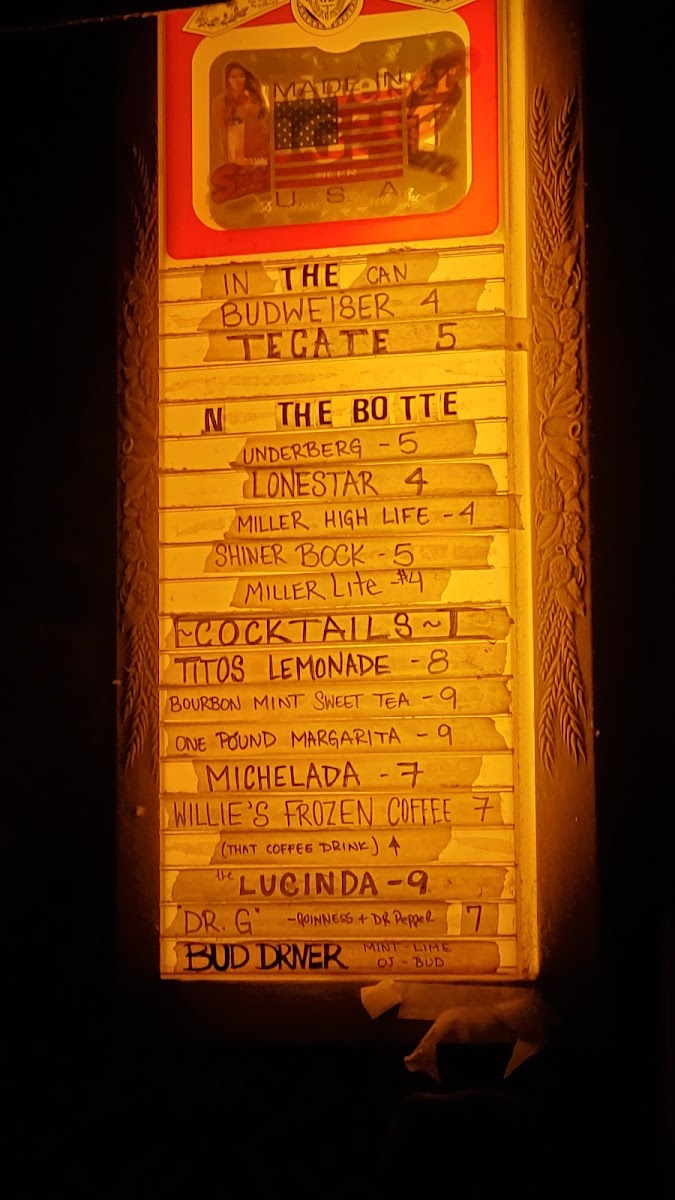 MADE IN
BEER
U.S.A.
IN THE CAN
BUDWEISER 4
TECATE 5
N THE BO TTE
UNDERBERG - 5
LONESTAR 4
MILLER HIGH LIFE - 4
SHINER BOCK - 5
MILLER Lite - $4
~COCKTAILS~
TITOS LEMONADE - 8
BOURBON MINT SWEET TEA - 9
ONE POUND MARGARITA - 9
MICHELADA - 7
WILLIE'S FROZEN COFFEE 7
(THAT COFFEE DRINK) ↑
the LUCINDA - 9
"DR. G" - GUINNESS + DR Pepper 7
BUD DRIVER MINT - LIME
OJ - BUD